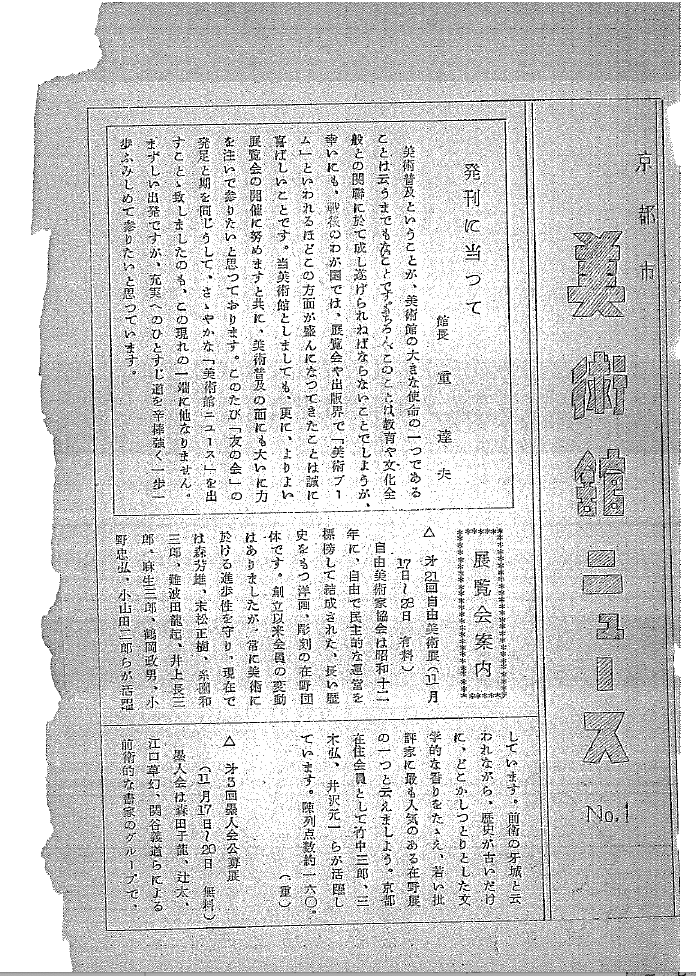 京都市
美術館ニュース
No.1
発刊に当つて
館長 重達夫
美術普及ということが、美術館の大きな使命の一つである
ことは云うまでもなことですもちろんこのことは教育や文化全
般との関聯に於て成し遂げられねばならないことでしようが、
幸いにも、戦後のわが国では、展覧会や出版界で「美術ブー
ム」といわれるほどこの方面が盛んになつてきたことは誠に
喜ばしいことです。当美術館としましても、更に、よりよい
展覧会の開催に努めますと共に、美術普及の面にも大いに力
を注いで参りたいと思つております。このたび「友の会」の
発足と期を同じうして、さゝやかな「美術館ニュース」を出
すことゝ致しましたのも、この現れの一端に他なりません。
まずしい出発ですが、充実へのひとすじ道を辛棒強く一歩一
歩ふみしめて参りたいと思つています。
展覧会案内
△ 才21回自由美術展(11月
17日〜28日 有料)
自由美術家協会は昭和十二
年に、自由で民主的な運営を
標榜して結成された、長い歴
史をもつ洋画、彫刻の在野団
体です。創立以来会員の変動
はありましたが、常に美術に
於ける進歩性を守り、現在で
は森芳雄、末松正樹、糸園和
三郎、難波田龍起、井上長三
郎、麻生三郎、鶴岡政男、小
野忠弘、小山田二郎らが活躍
しています。前衛の牙城と云
われながら、歴史が古いだけ
に、どこかしつとりとした文
学的な香りをたゝえ、若い批
評家に最も人気のある在野展
の一つと云えましよう。京都
在住会員として竹中三郎、三
木弘、井沢元一らが活躍し
ています。陳列点数約一六〇。
(重)
△ 才3回墨人会公募展
(11月17日〜20日 無料)
墨人会は森田子龍、辻太、
江口草玄、関谷義道らによる
前衛的な書家のグループで、